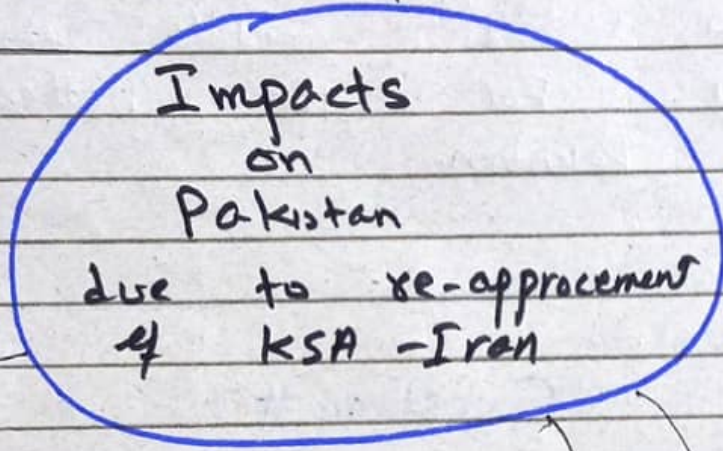 Impacts
on
Pakistan
due to re-approcement
of KSA - Iran